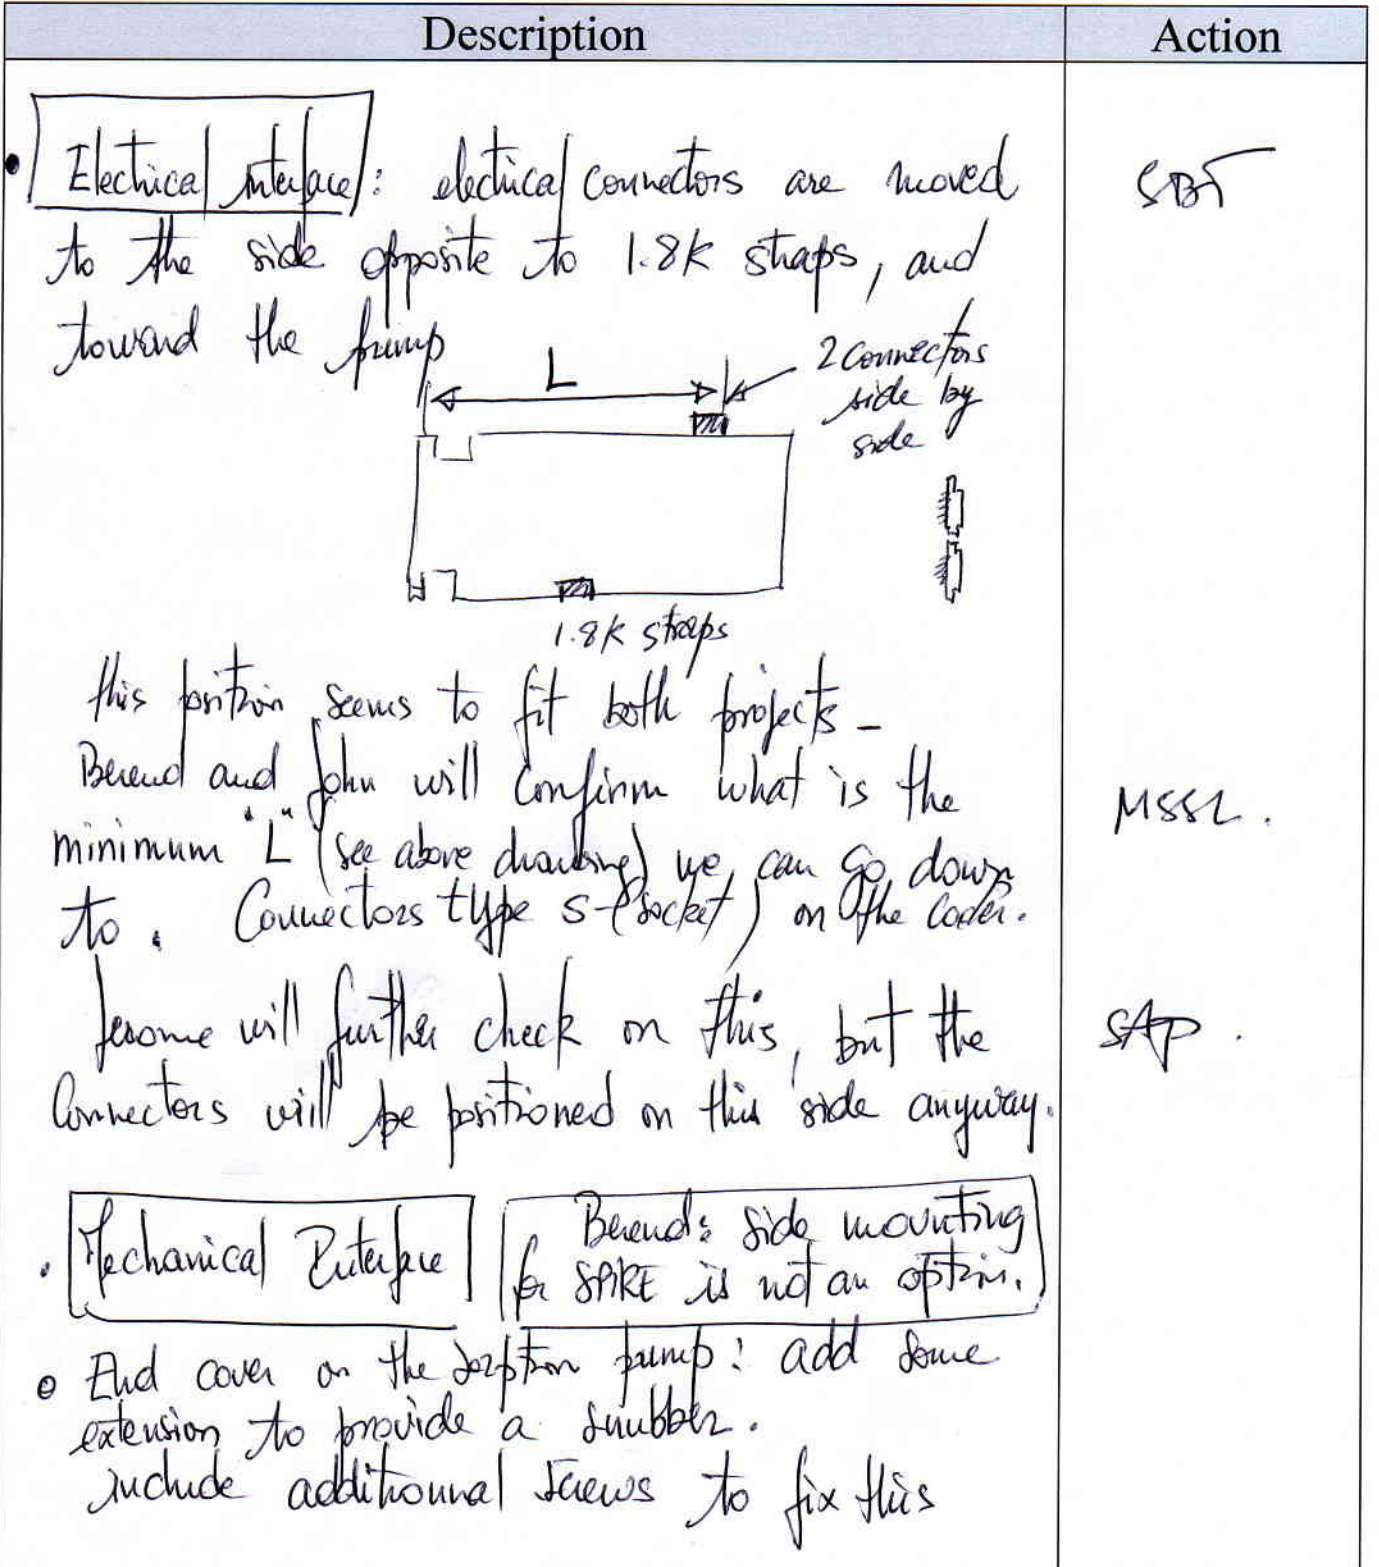 Description Action
• Electrical interface: electrical connectors are moved SBT
to the side opposite to 1.8K straps, and
toward the pump
L
2 connectors
side by
side
1.8K straps
this position seems to fit both projects -
Berend and John will confirm what is the MSSL.
minimum "L" (see above drawing) we can go down
to. Connectors type S-(socket) on the cooler.
Jerome will further check on this, but the SAP.
connectors will be positioned on this side anyway.
• Mechanical Interface
Berend: side mounting
for SPIRE is not an option.
• End cover on the sorption pump: add some
extension to provide a snubber.
include additionnal screws to fix this